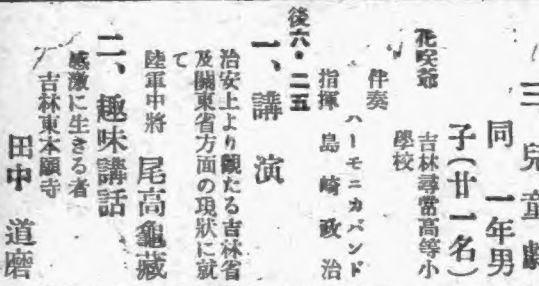 三、兒童劇
同 一年男
子(廿一名)
吉林尋常高等小
學校
花咲爺
伴奏
ハーモニカバンド
指揮 島崎政治
後六・二五
一、講演
治安上より觀たる吉林省
及關東省方面の現狀に就
て
陸軍中將 尾高龜藏
二、趣味講話
感激に生きる者
吉林東本願寺
田中道磨